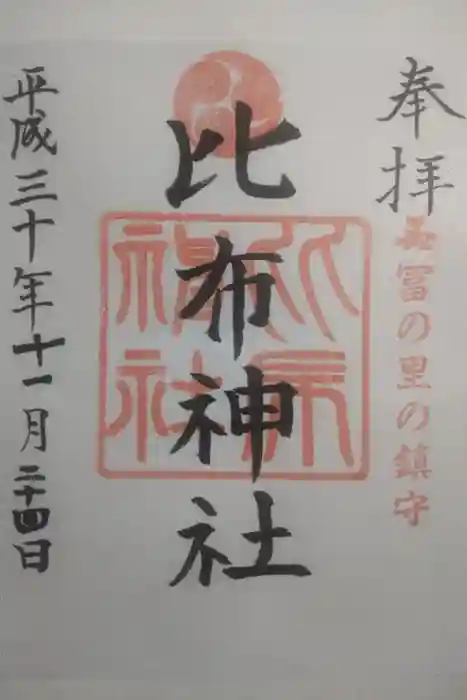 奉拝
冨の里の鎮守
比布神社
平成三十年十一月二十四日